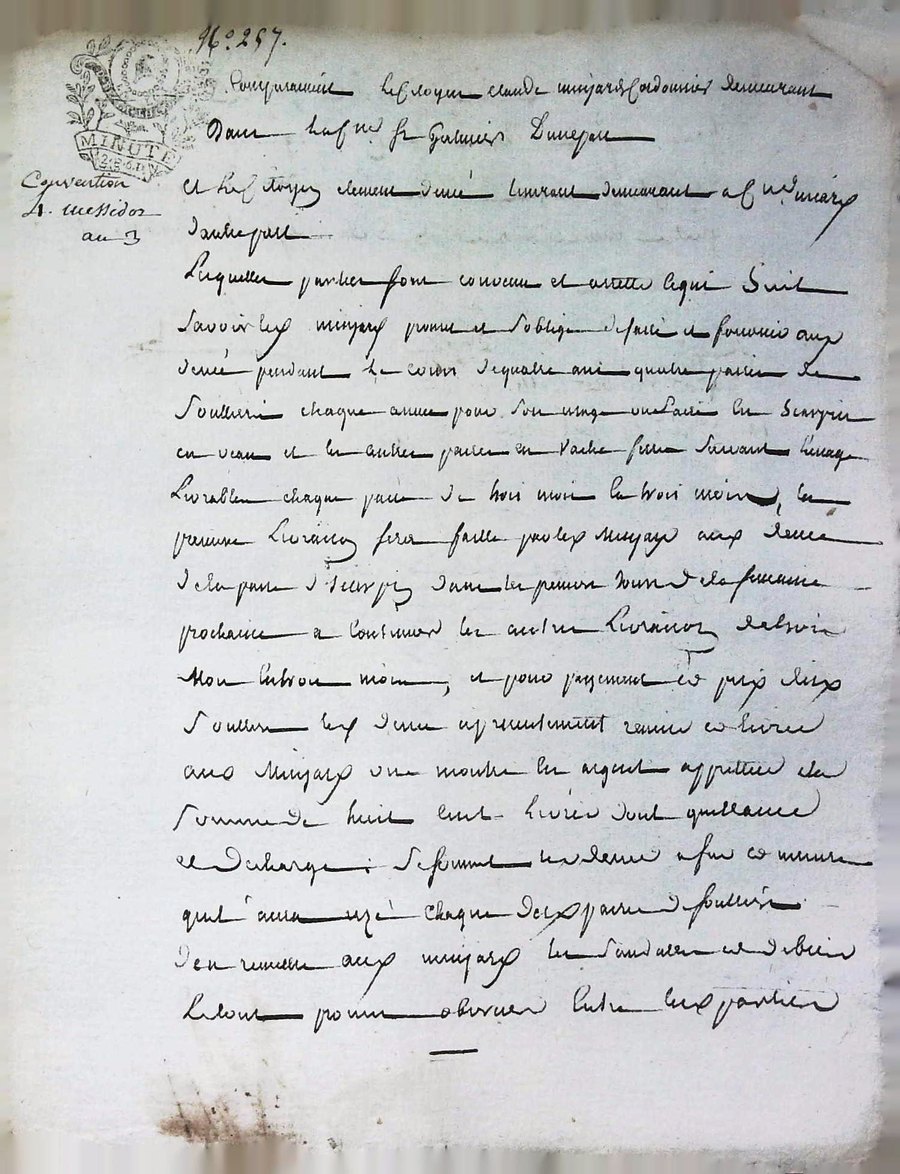 N.° 257.
MINUTE
Convention
4. messidor
an 3
Comparaient Le Citoyen claude minjard Cordonnier demeurant
Dans La St Galmier Dunepart
et Le Citoyen clement demeurant
dautre part
Lesquelles parties sont convenu et arretté cequi Suit
Savoir Led minjard promet et Soblige defaire et fournir aud
pendant Le cour dequatre ans quatre paires de
Soulliers chaque année pour Son usage une Paire En Scarpin
en veau et les autres paires en vache Suivant L'usage
Livrables chaque paire de trois mois En trois mois, La
premiere Livraison sera faitte par led Minjard aud
dela paire d'Scarpin dans les premiers Jours dela semaine
prochaine a Continuer les autres Livraison detrois
Mois Entrois mois, et pour payement ce prix desd
Soulliers led a presentement remis et livré
aud Minjard une montre En argent apprettiée ala
Somme de huit Cent Livres dont quittance
et decharge, afur ce mesure
quil aura usé chaque desd paires desoulliers
den remettre aud minjard les
Letout promis observer Entre Lesd parties